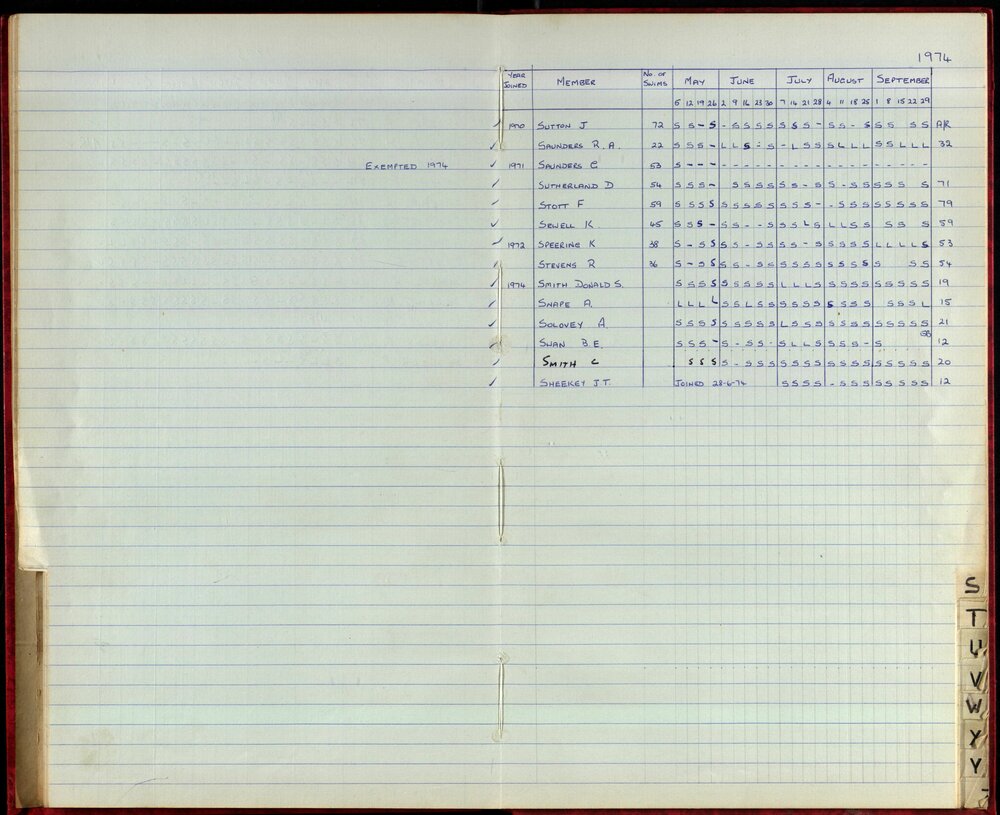 1974
YEAR JOINED MEMBER No. OF SWIMS MAY JUNE JULY AUGUST SEPTEMBER
5 12 19 26 2 9 16 23 30 7 14 21 28 4 11 18 25 1 8 15 22 29
✓ 1970 SUTTON J 72 S S - S - S S S S S S S - S S - S S S S S AR
✓ SAUNDERS R.A. 22 S S S - L L S - S - L S S S L L L S S L L L 32
EXEMPTED 1974 ✓ 1971 SAUNDERS C 53 S - - - - - - - - - - - - - - - - - - - - -
✓ SUTHERLAND D 54 S S S - S S S S S S - S S - S S S S S S 71
✓ STOTT F 59 S S S S S S S S S S S S - - S S S S S S S S 79
✓ SEWELL K 45 S S S - S S - - S S S L S L L S S S S S 59
✓ 1972 SPEERING K 38 S - S S S S - S S S S - S S S S S L L L L S 53
✓ STEVENS R 36 S - S S S S - S S S S S S S S S S S S S 54
✓ 1974 SMITH DONALD S. S S S S S S S S S L L L S S S S S S S S S S 19
✓ SNAPE A. L L L L S S L S S S S S S S S S S S S S L 15
✓ SOLOVEY A S S S S S S S S S L S S S S S S S S S S S S 21
✓ SWAN B.E. S S S - S - S S - S L L S S S S - S 12
✓ SMITH C S S S S - S S S S S S S S S S S S S S S S 20
✓ SHEEKEY J.T. JOINED 28-6-74 S S S S - S S S S S S S S 12
S
T
U
V
W
X
Y